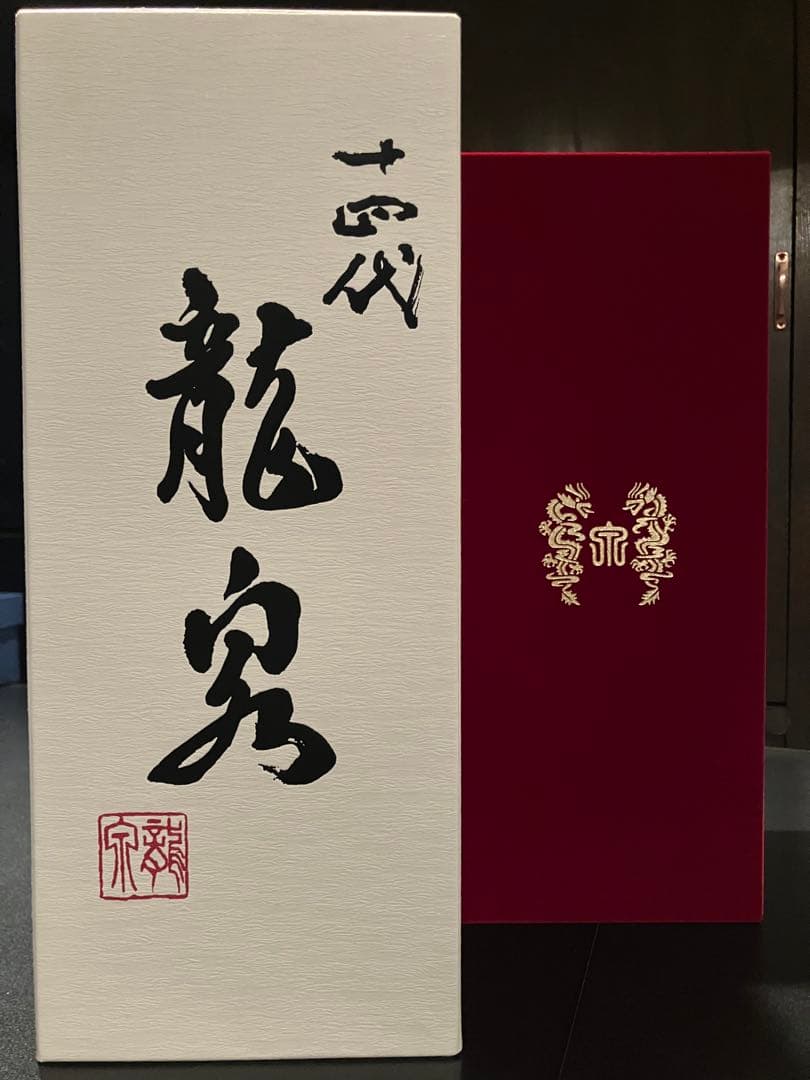 十四代
龍泉
龍泉
泉